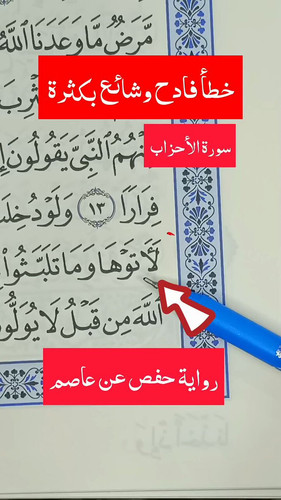 مَّرَضٌ مَّا وَعَدَنَا ٱللَّهُ
خطأ فادح وشائع بكثرة
سورة الأحزاب
ٱلنَّبِيَّ يَقُولُونَ
فِرَارًا ١٣ وَلَوْ دُخِلَ
لَأٓتَوْهَا وَمَا تَلَبَّثُوا۟
ٱللَّهَ مِن قَبْلُ لَا يُوَلُّو
رواية حفص عن عاصم